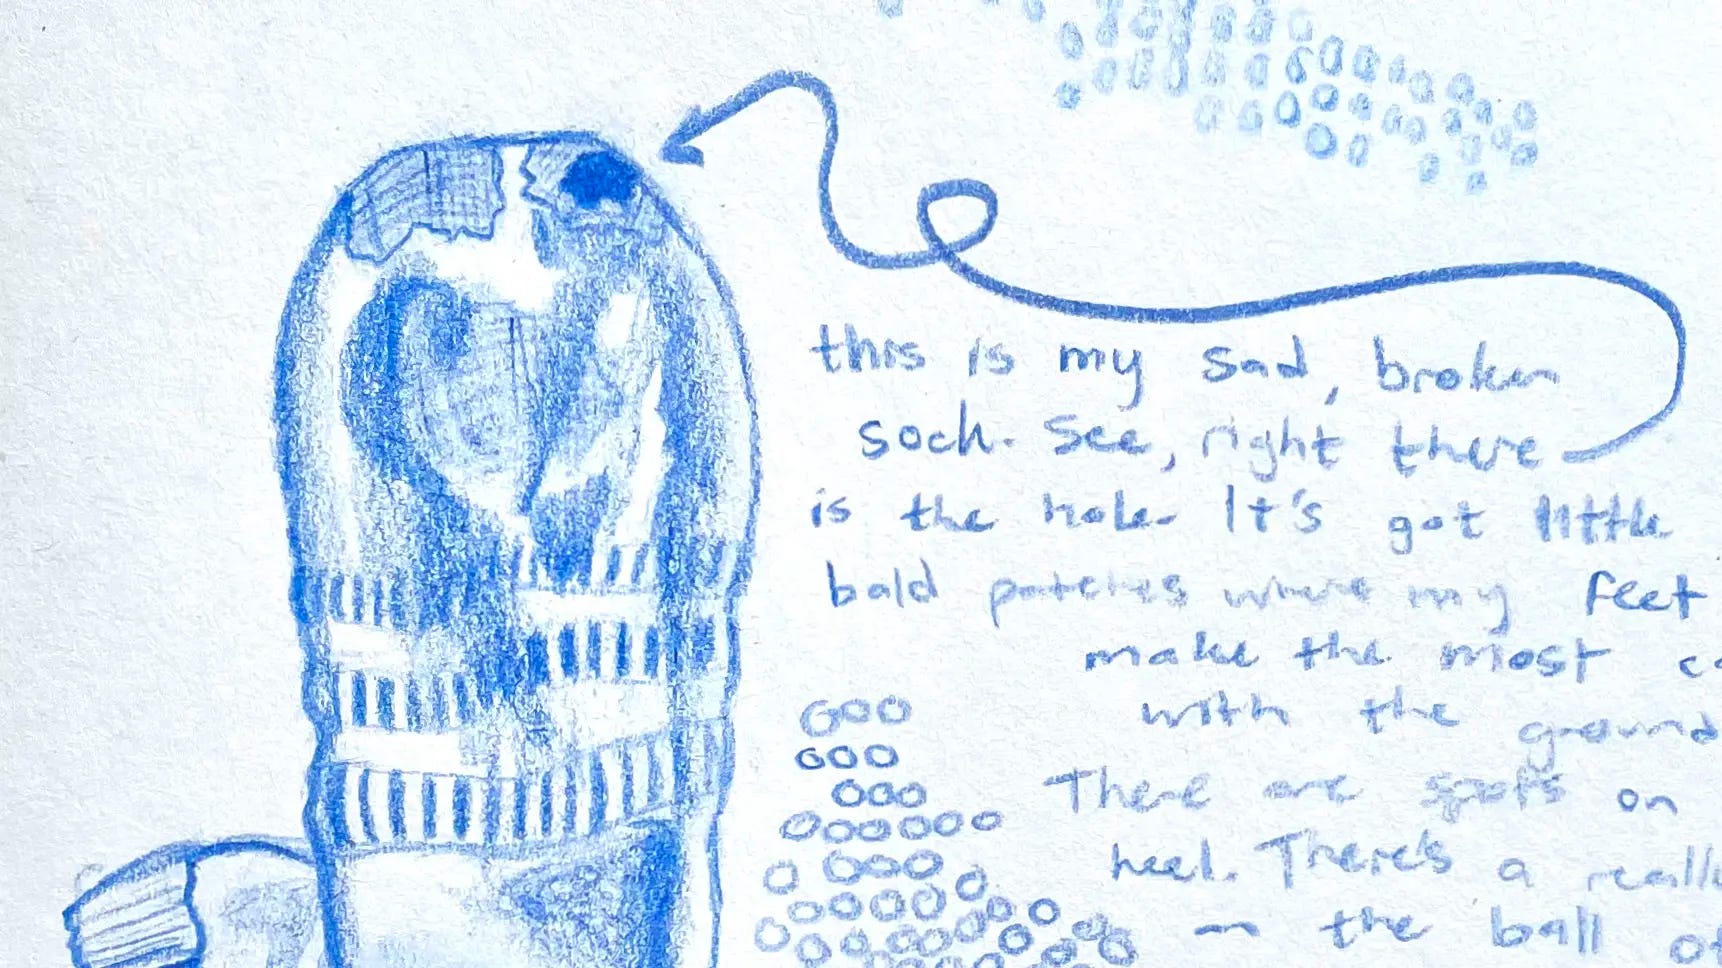 this is my sad, broken
sock. See, right there
is the hole. It's got little
bald patches where my feet
make the most
with the ground
There are spots on
heel. There's a really
on the ball of